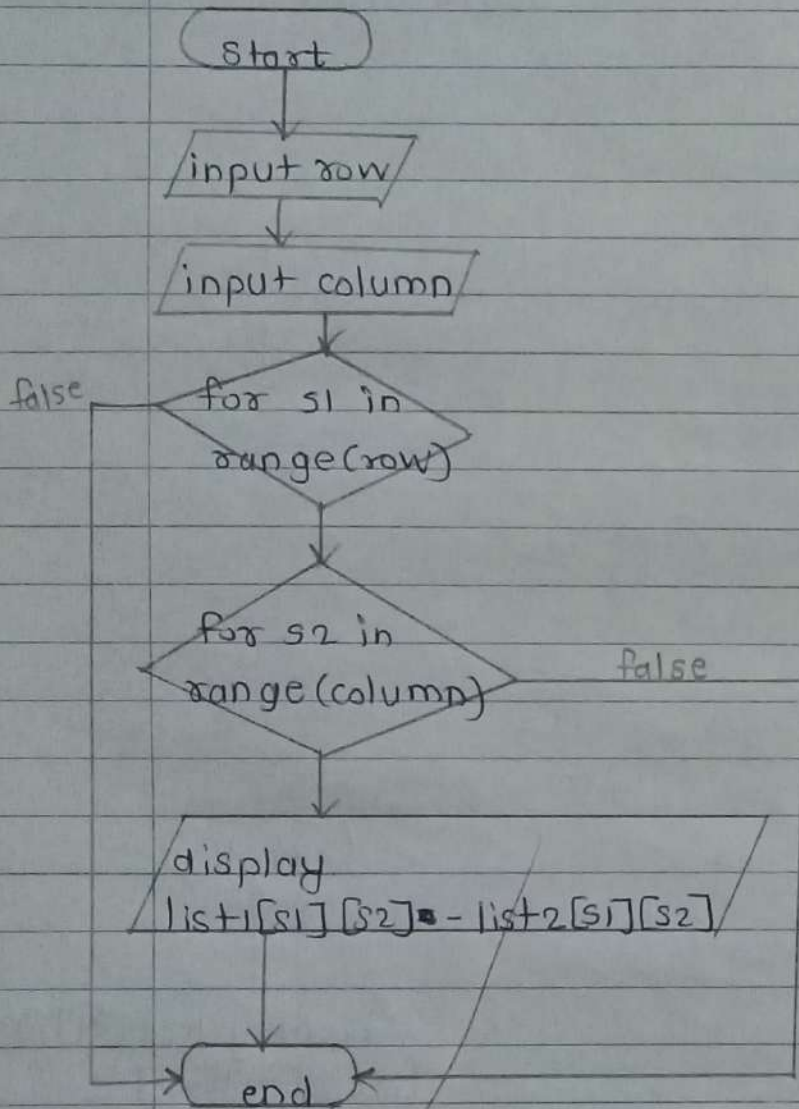 Start
input row
input column
false
for s1 in
range(row)
for s2 in
range(column)
false
display
list1[s1][s2] - list2[s1][s2]
end